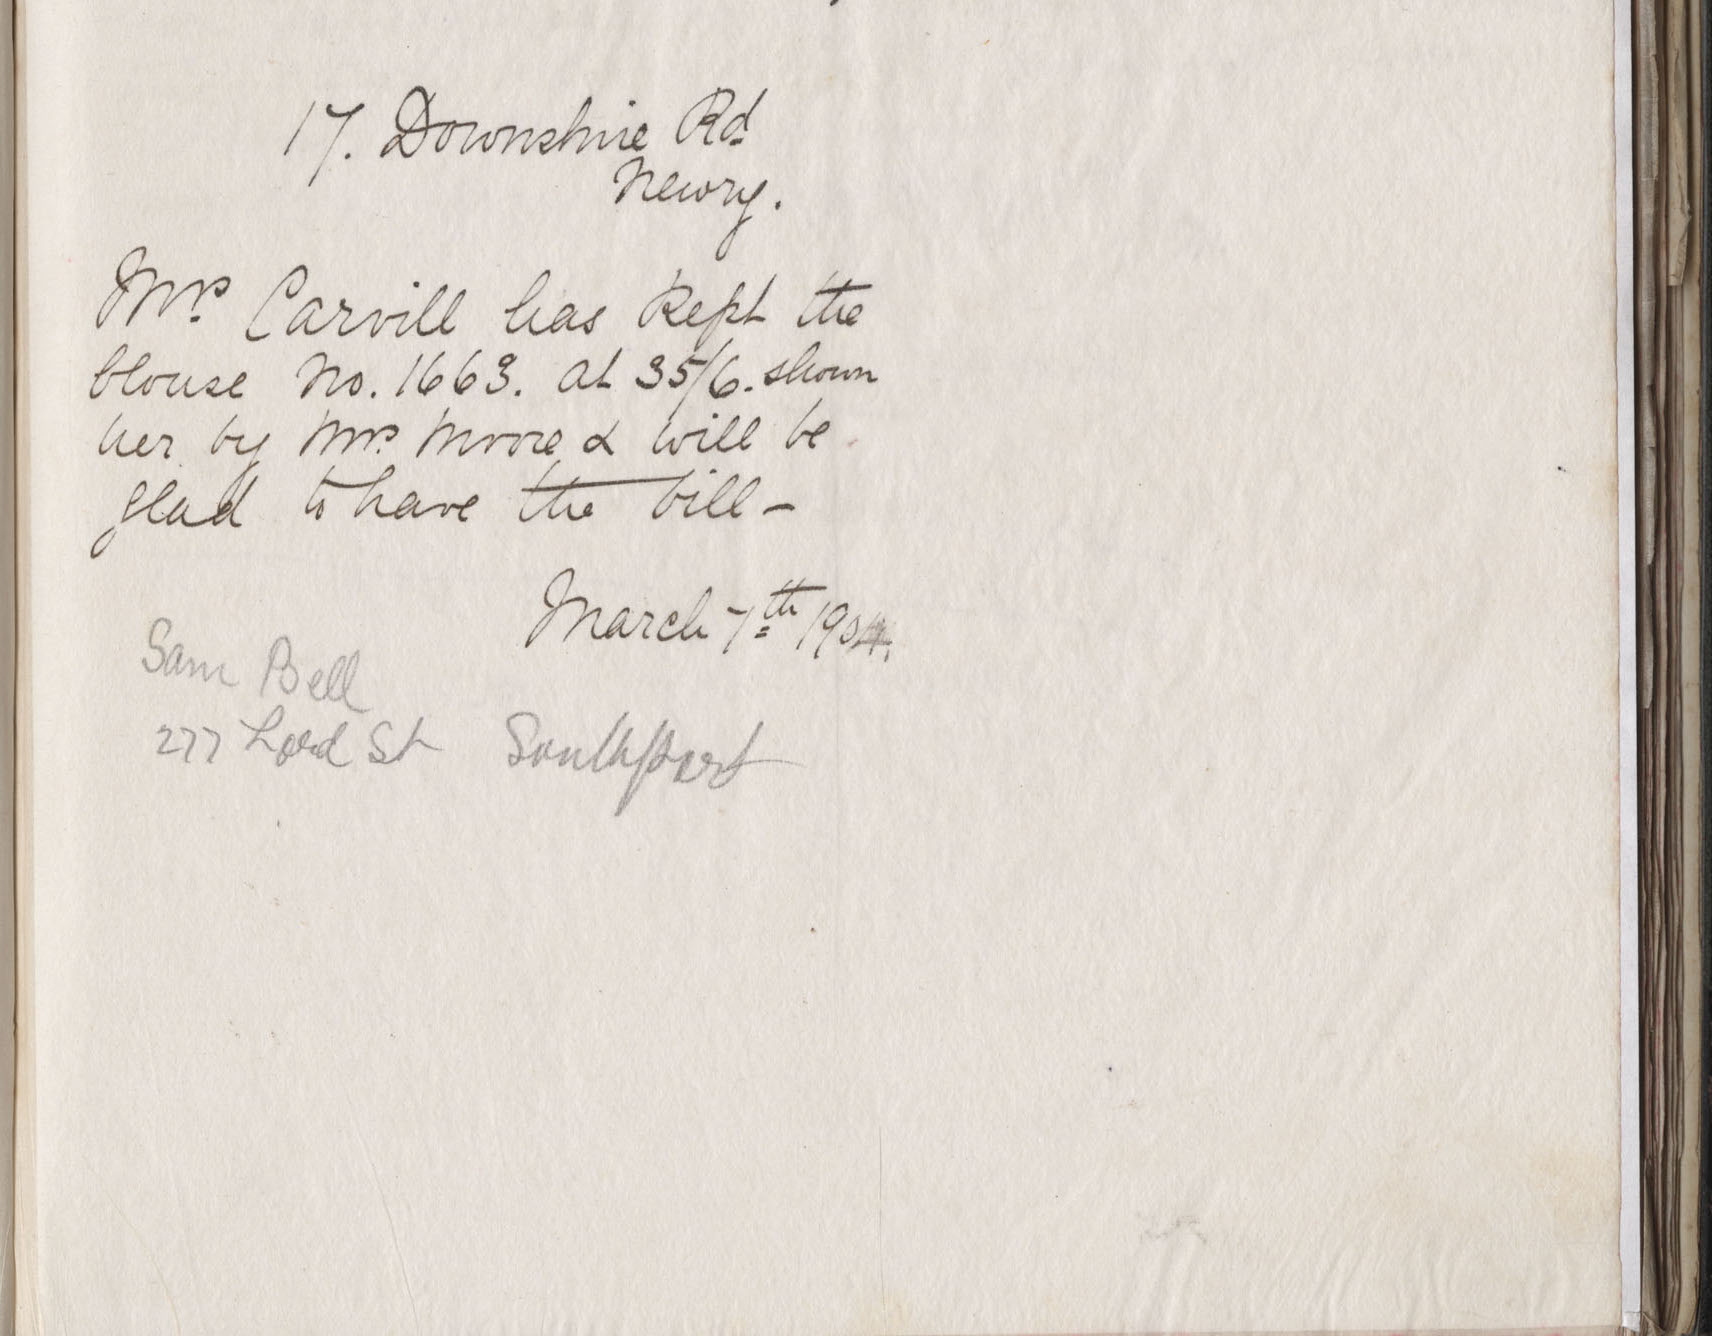 17. Downshire Rd
Newry.
Mrs. Carvill has kept the
blouse No. 1663. at 35/6. shown
her by Mrs. Moore & will be
glad to have the bill –
March 7th 1904.
Sam Bell
277 Lord St Southport